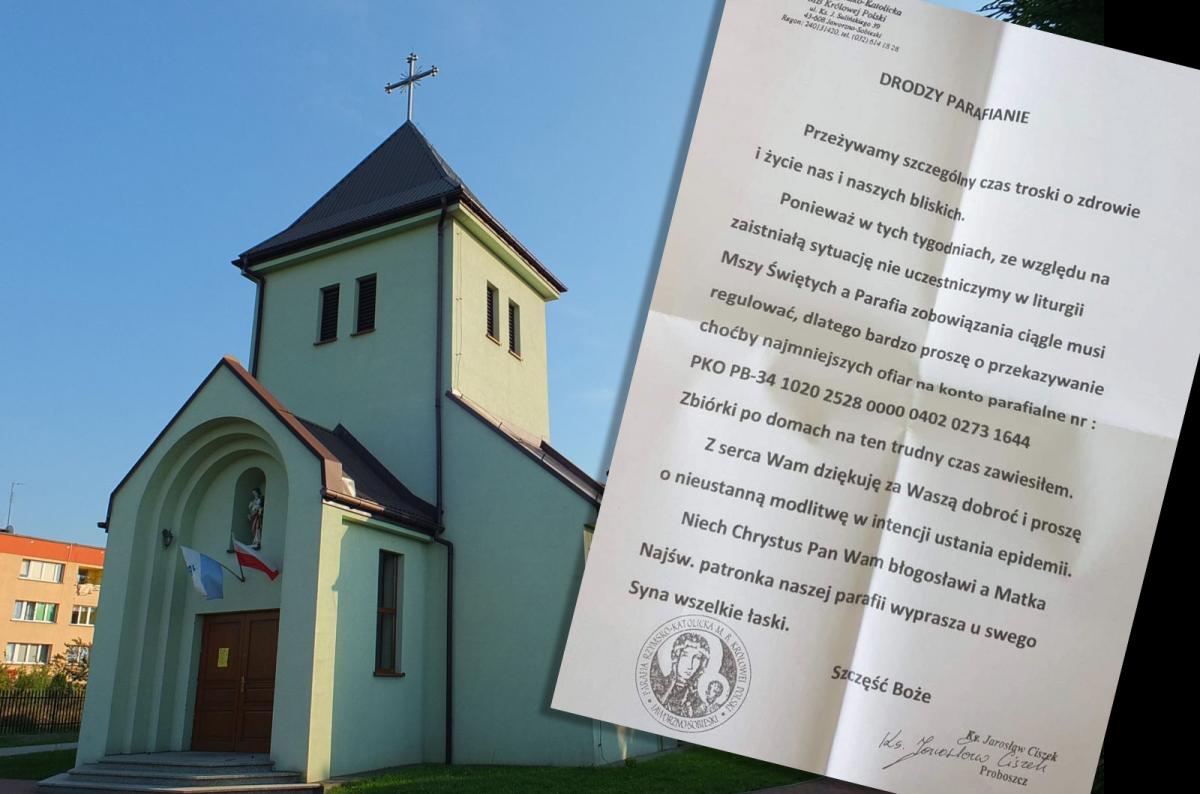 -Katolicka
MB Królowej Polski
ul. Ks. J. Sulińskiego 39
43-608 Jaworzno-Sobieski
Regon: 240131420, tel. (032) 614 18 28
DRODZY PARAFIANIE
Przeżywamy szczególny czas troski o zdrowie
i życie nas i naszych bliskich.
Ponieważ w tych tygodniach, ze względu na
zaistniałą sytuację nie uczestniczymy w liturgii
Mszy Świętych a Parafia zobowiązania ciągle musi
regulować, dlatego bardzo proszę o przekazywanie
choćby najmniejszych ofiar na konto parafialne nr :
PKO PB-34 1020 2528 0000 0402 0273 1644
Zbiórki po domach na ten trudny czas zawiesiłem.
Z serca Wam dziękuję za Waszą dobroć i proszę
o nieustanną modlitwę w intencji ustania epidemii.
Niech Chrystus Pan Wam błogosławi a Matka
Najśw. patronka naszej parafii wyprasza u swego
Syna wszelkie łaski.
PARAFIA RZYMSKO-KATOLICKA M. B. KRÓLOWEJ POLSKI
JAWORZNO-SOBIESKI
Szczęść Boże
Ks. Jarosław Ciszek
Ks. Jarosław Ciszek
Proboszcz